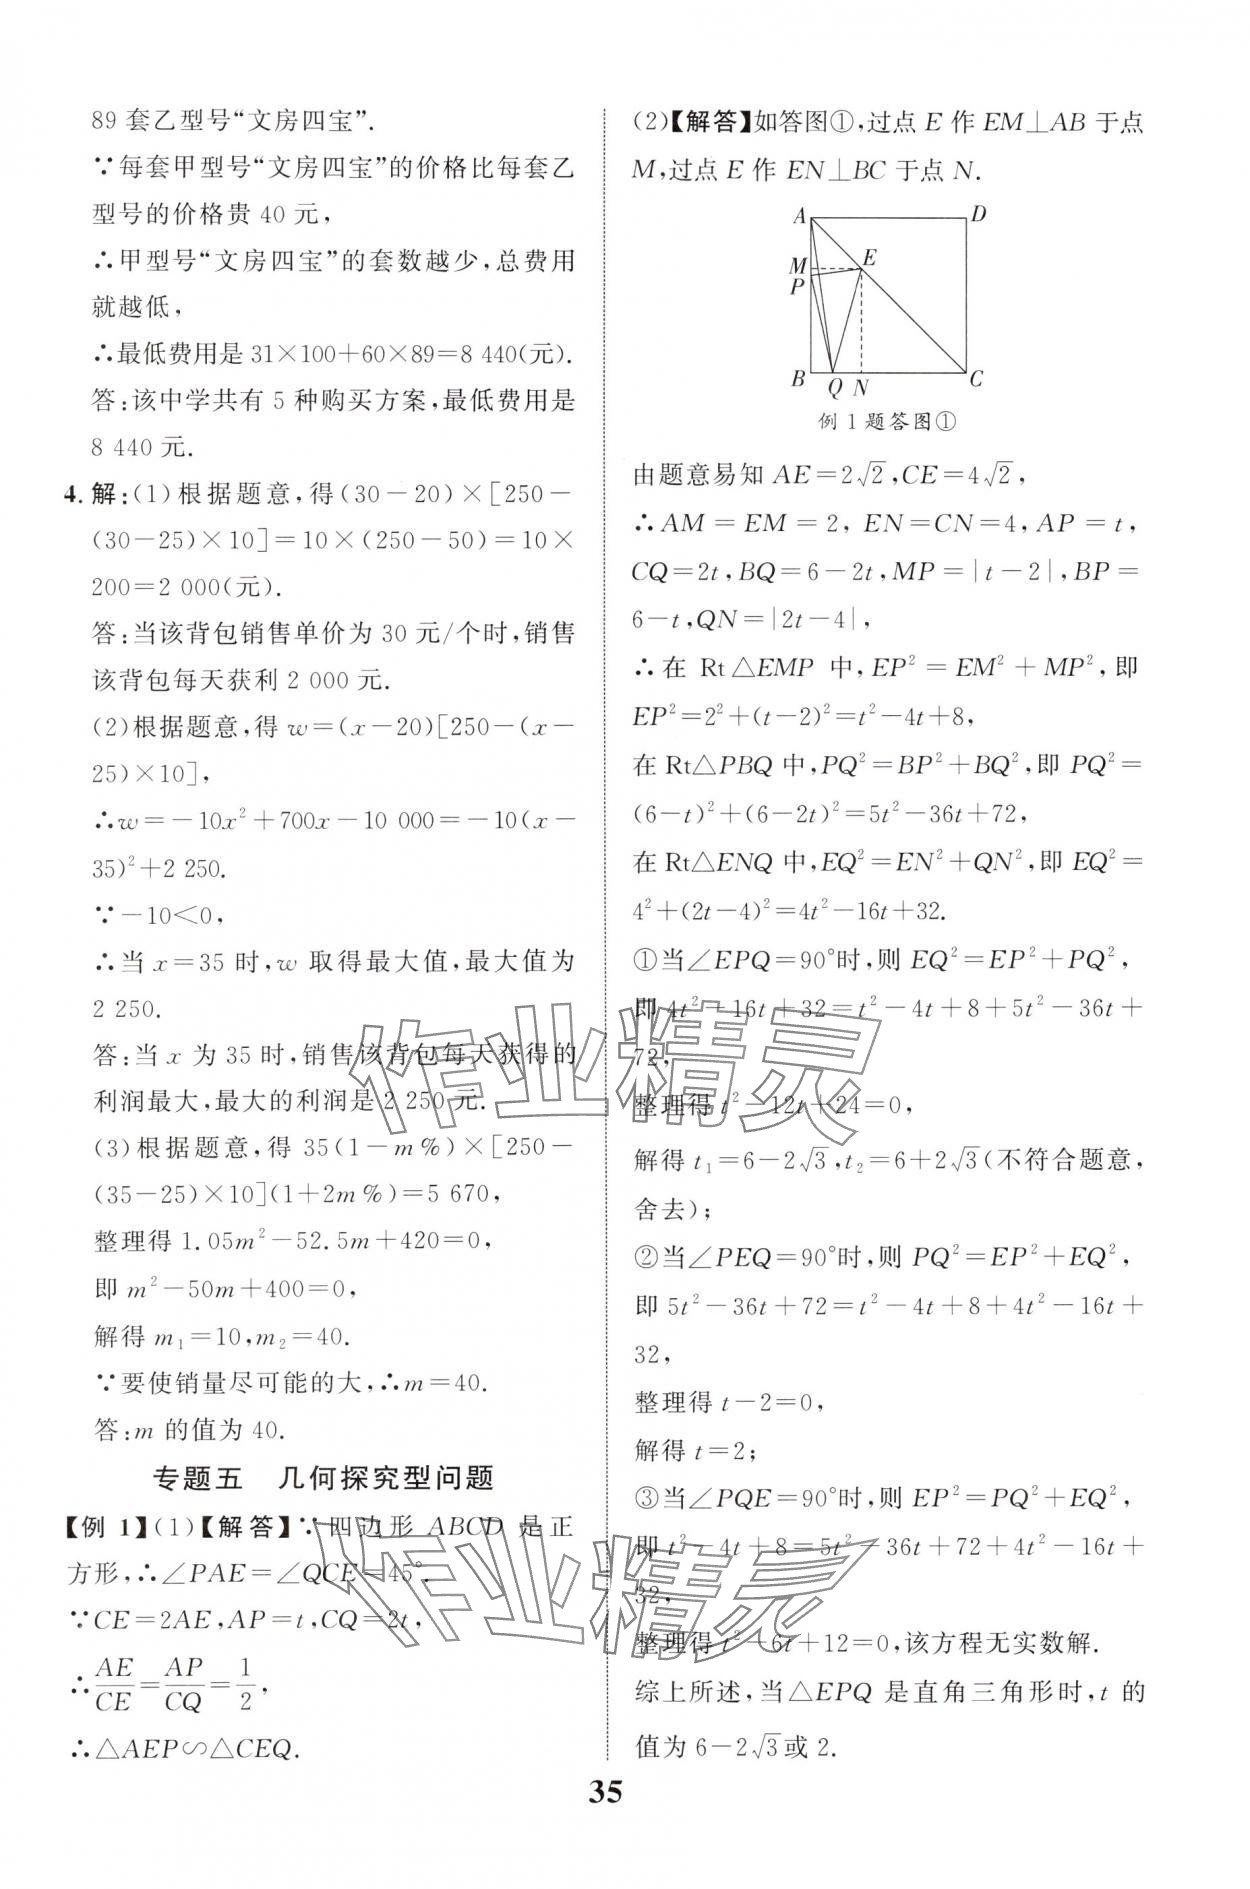 89 套乙型号“文房四宝”.
∵每套甲型号“文房四宝”的价格比每套乙
型号的价格贵 40 元,
∴甲型号“文房四宝”的套数越少,总费用
就越低,
∴最低费用是 31×100+60×89=8 440(元).
答:该中学共有 5 种购买方案,最低费用是
8 440 元.
4. 解:(1)根据题意,得(30-20)×[250-
(30-25)×10]=10×(250-50)=10×
200=2 000(元).
答:当该背包销售单价为 30 元/个时,销售
该背包每天获利 2 000 元.
(2)根据题意,得 w=(x-20)[250-(x-
25)×10],
∴w=-10x²+700x-10 000=-10(x-
35)²+2 250.
∵-10<0,
∴当 x=35 时,w 取得最大值,最大值为
2 250.
答:当 x 为 35 时,销售该背包每天获得的
利润最大,最大的利润是 2 250 元.
(3)根据题意,得 35(1-m%)×[250-
(35-25)×10](1+2m%)=5 670,
整理得 1.05m²-52.5m+420=0,
即 m²-50m+400=0,
解得 m₁=10,m₂=40.
∵要使销量尽可能的大,∴m=40.
答:m 的值为 40.
专题五 几何探究型问题
【例 1】(1)【解答】∵四边形 ABCD 是正
方形,∴∠PAE=∠QCE=45°.
∵CE=2AE,AP=t,CQ=2t,
∴AE/CE=AP/CQ=1/2,
∴△AEP∽△CEQ.
(2)【解答】如答图①,过点 E 作 EM⊥AB 于点
M,过点 E 作 EN⊥BC 于点 N.
A D
M E
P
B Q N C
例 1 题答图①
由题意易知 AE=2√2,CE=4√2,
∴AM=EM=2, EN=CN=4,AP=t,
CQ=2t,BQ=6-2t,MP=|t-2|,BP=
6-t,QN=|2t-4|,
∴在 Rt△EMP 中,EP²=EM²+MP²,即
EP²=2²+(t-2)²=t²-4t+8,
在 Rt△PBQ 中,PQ²=BP²+BQ²,即 PQ²=
(6-t)²+(6-2t)²=5t²-36t+72,
在 Rt△ENQ 中,EQ²=EN²+QN²,即 EQ²=
4²+(2t-4)²=4t²-16t+32.
①当∠EPQ=90°时,则 EQ²=EP²+PQ²,
即 4t²-16t+32=t²-4t+8+5t²-36t+
72,
整理得 t²-12t+24=0,
解得 t₁=6-2√3,t₂=6+2√3(不符合题意,
舍去);
②当∠PEQ=90°时,则 PQ²=EP²+EQ²,
即 5t²-36t+72=t²-4t+8+4t²-16t+
32,
整理得 t-2=0,
解得 t=2;
③当∠PQE=90°时,则 EP²=PQ²+EQ²,
即 t²-4t+8=5t²-36t+72+4t²-16t+
32,
整理得 t²-6t+12=0,该方程无实数解.
综上所述,当△EPQ 是直角三角形时,t 的
值为 6-2√3或 2.
作业精灵
作业精灵
35